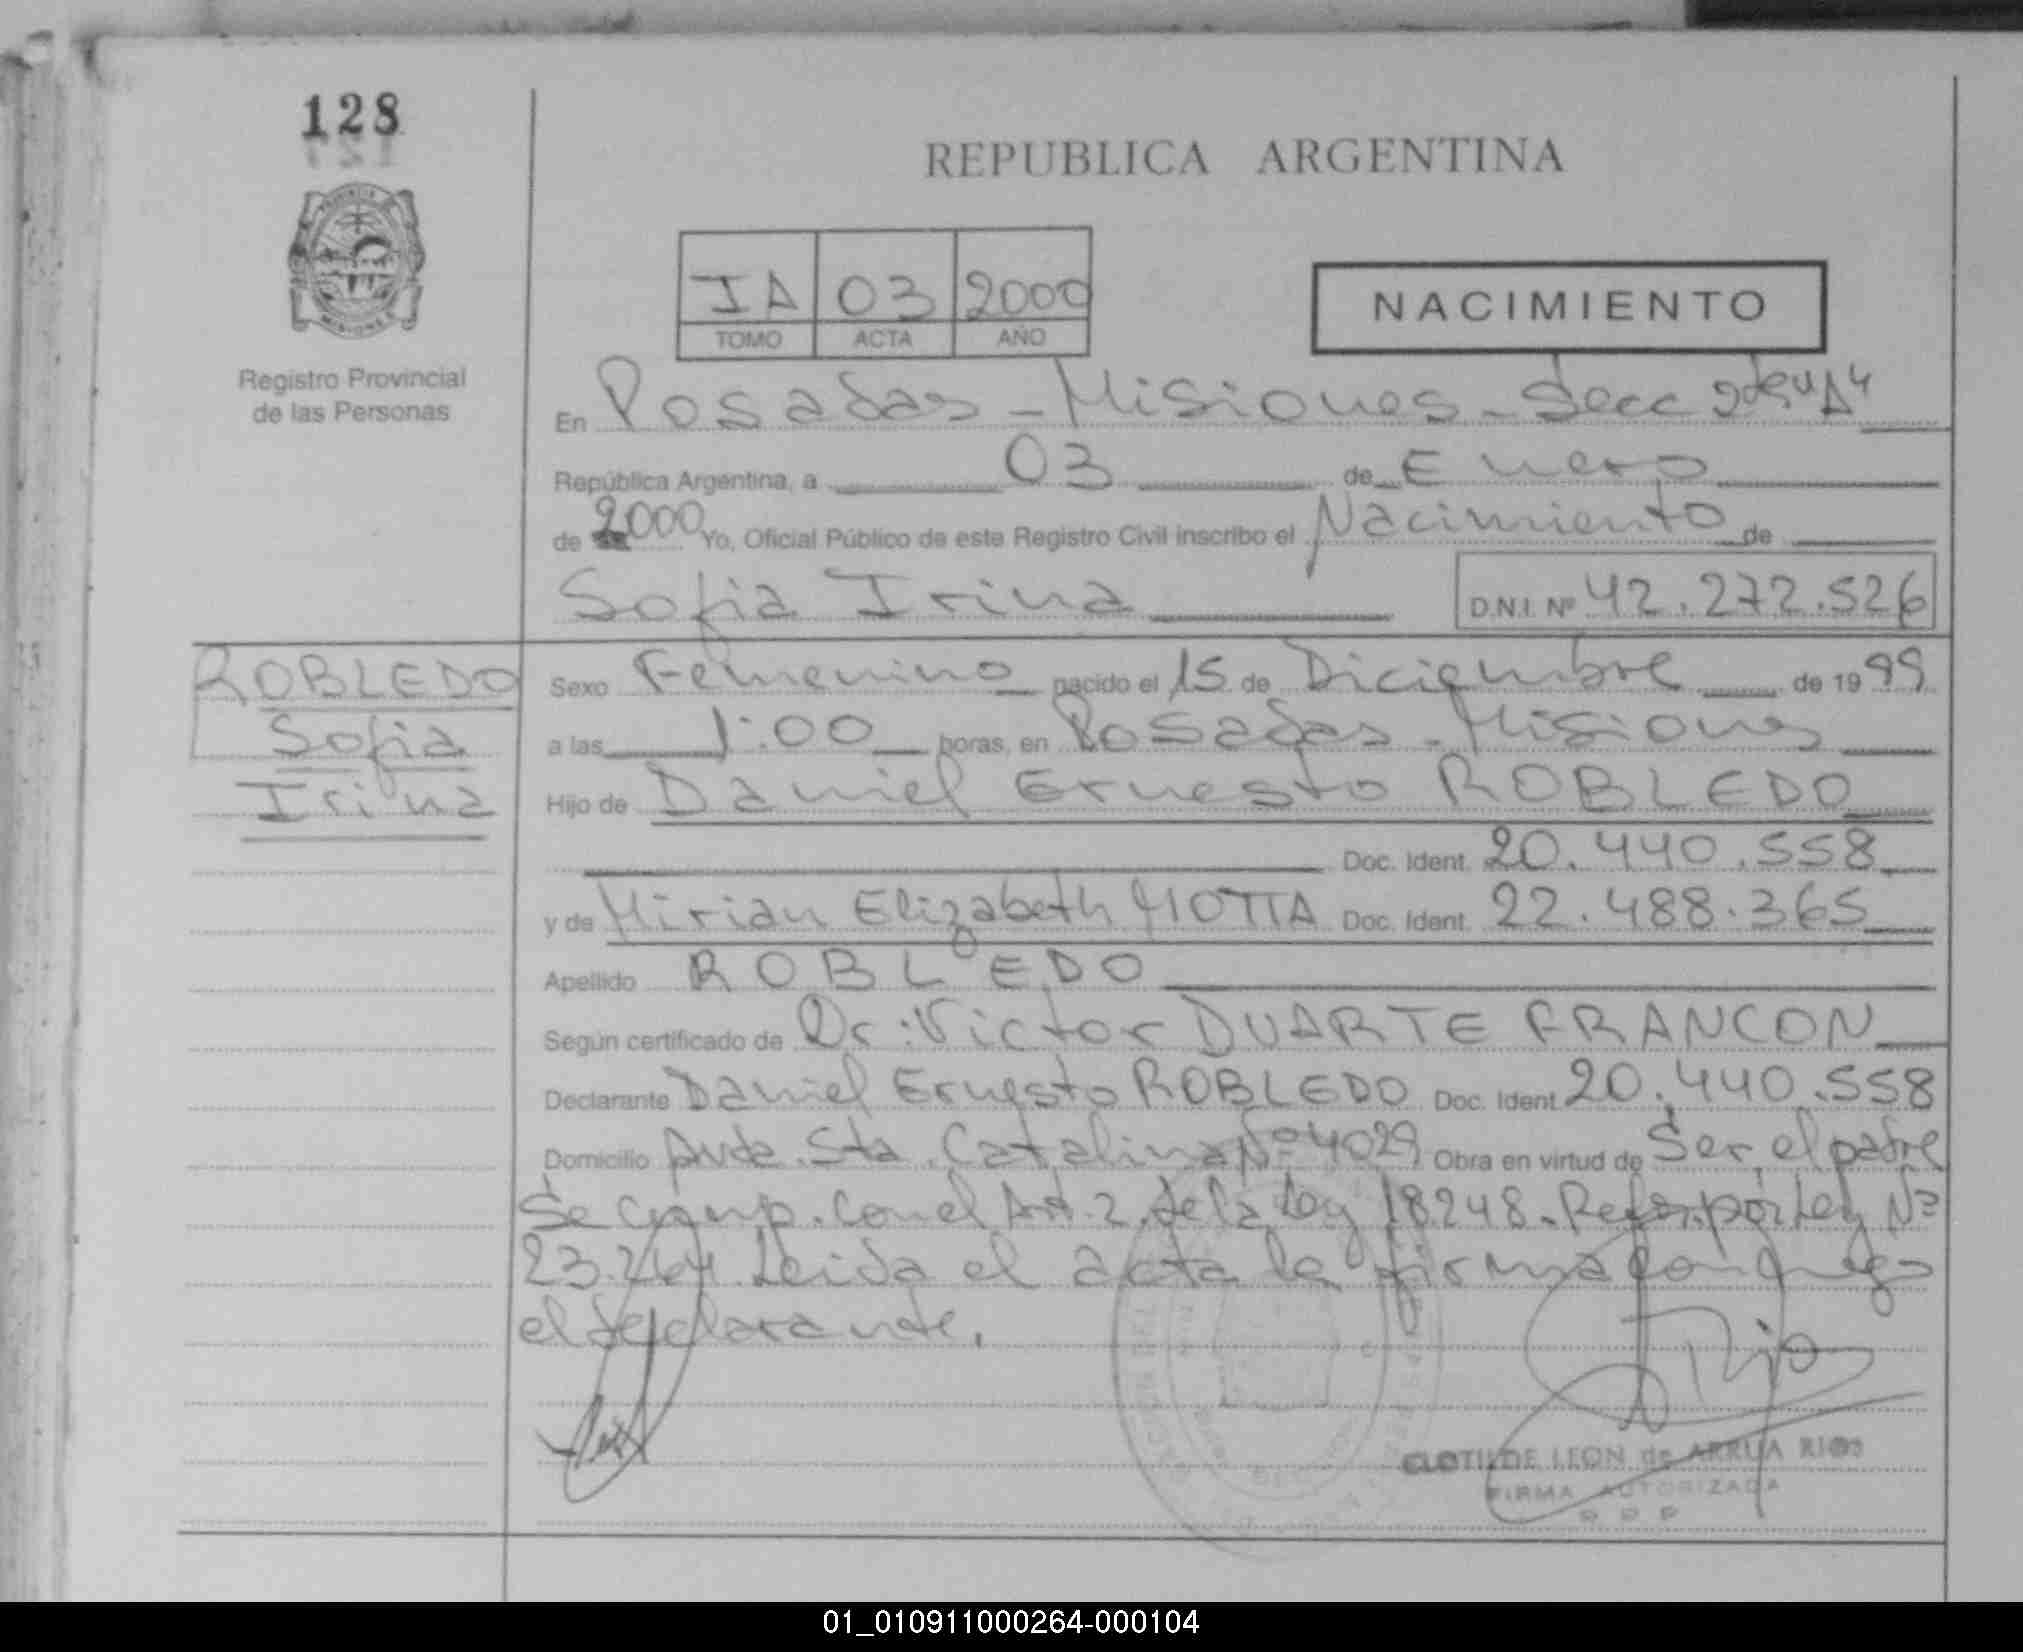 128
REPUBLICA ARGENTINA
PROVINCIA
MISIONES
IA 03 2000
TOMO ACTA AÑO
NACIMIENTO
Registro Provincial
de las Personas
En Posadas - Misiones - Secc 2da "A"
República Argentina, a 03 de Enero
de 2000 Yo, Oficial Público de este Registro Civil inscribo el Nacimiento de
Sofia Irina D.N.I. Nº 42.272.526
ROBLEDO
Sofia
Irina
Sexo Femenino nacido el 15 de Diciembre de 1999
a las 1:00 horas, en Posadas - Misiones
Hijo de Daniel Ernesto ROBLEDO
Doc. Ident. 20.440.558
y de Mirian Elizabeth MOTTA Doc. Ident. 22.488.365
Apellido ROBLEDO
Según certificado de Dr: Victor DUARTE FRANCON
Declarante Daniel Ernesto ROBLEDO Doc. Ident. 20.440.558
Domicilio Avda. Sta. Catalina Nº 4029 Obra en virtud de Ser el padre
Se comp. con el Art. 2 de la Ley 18248. Refor. por Ley Nº
23.264. Leida el acta la firma conmigo
el declarante.
Rios
CLOTILDE LEON de ARRUA RIOS
FIRMA AUTORIZADA
R P P
01_010911000264-000104